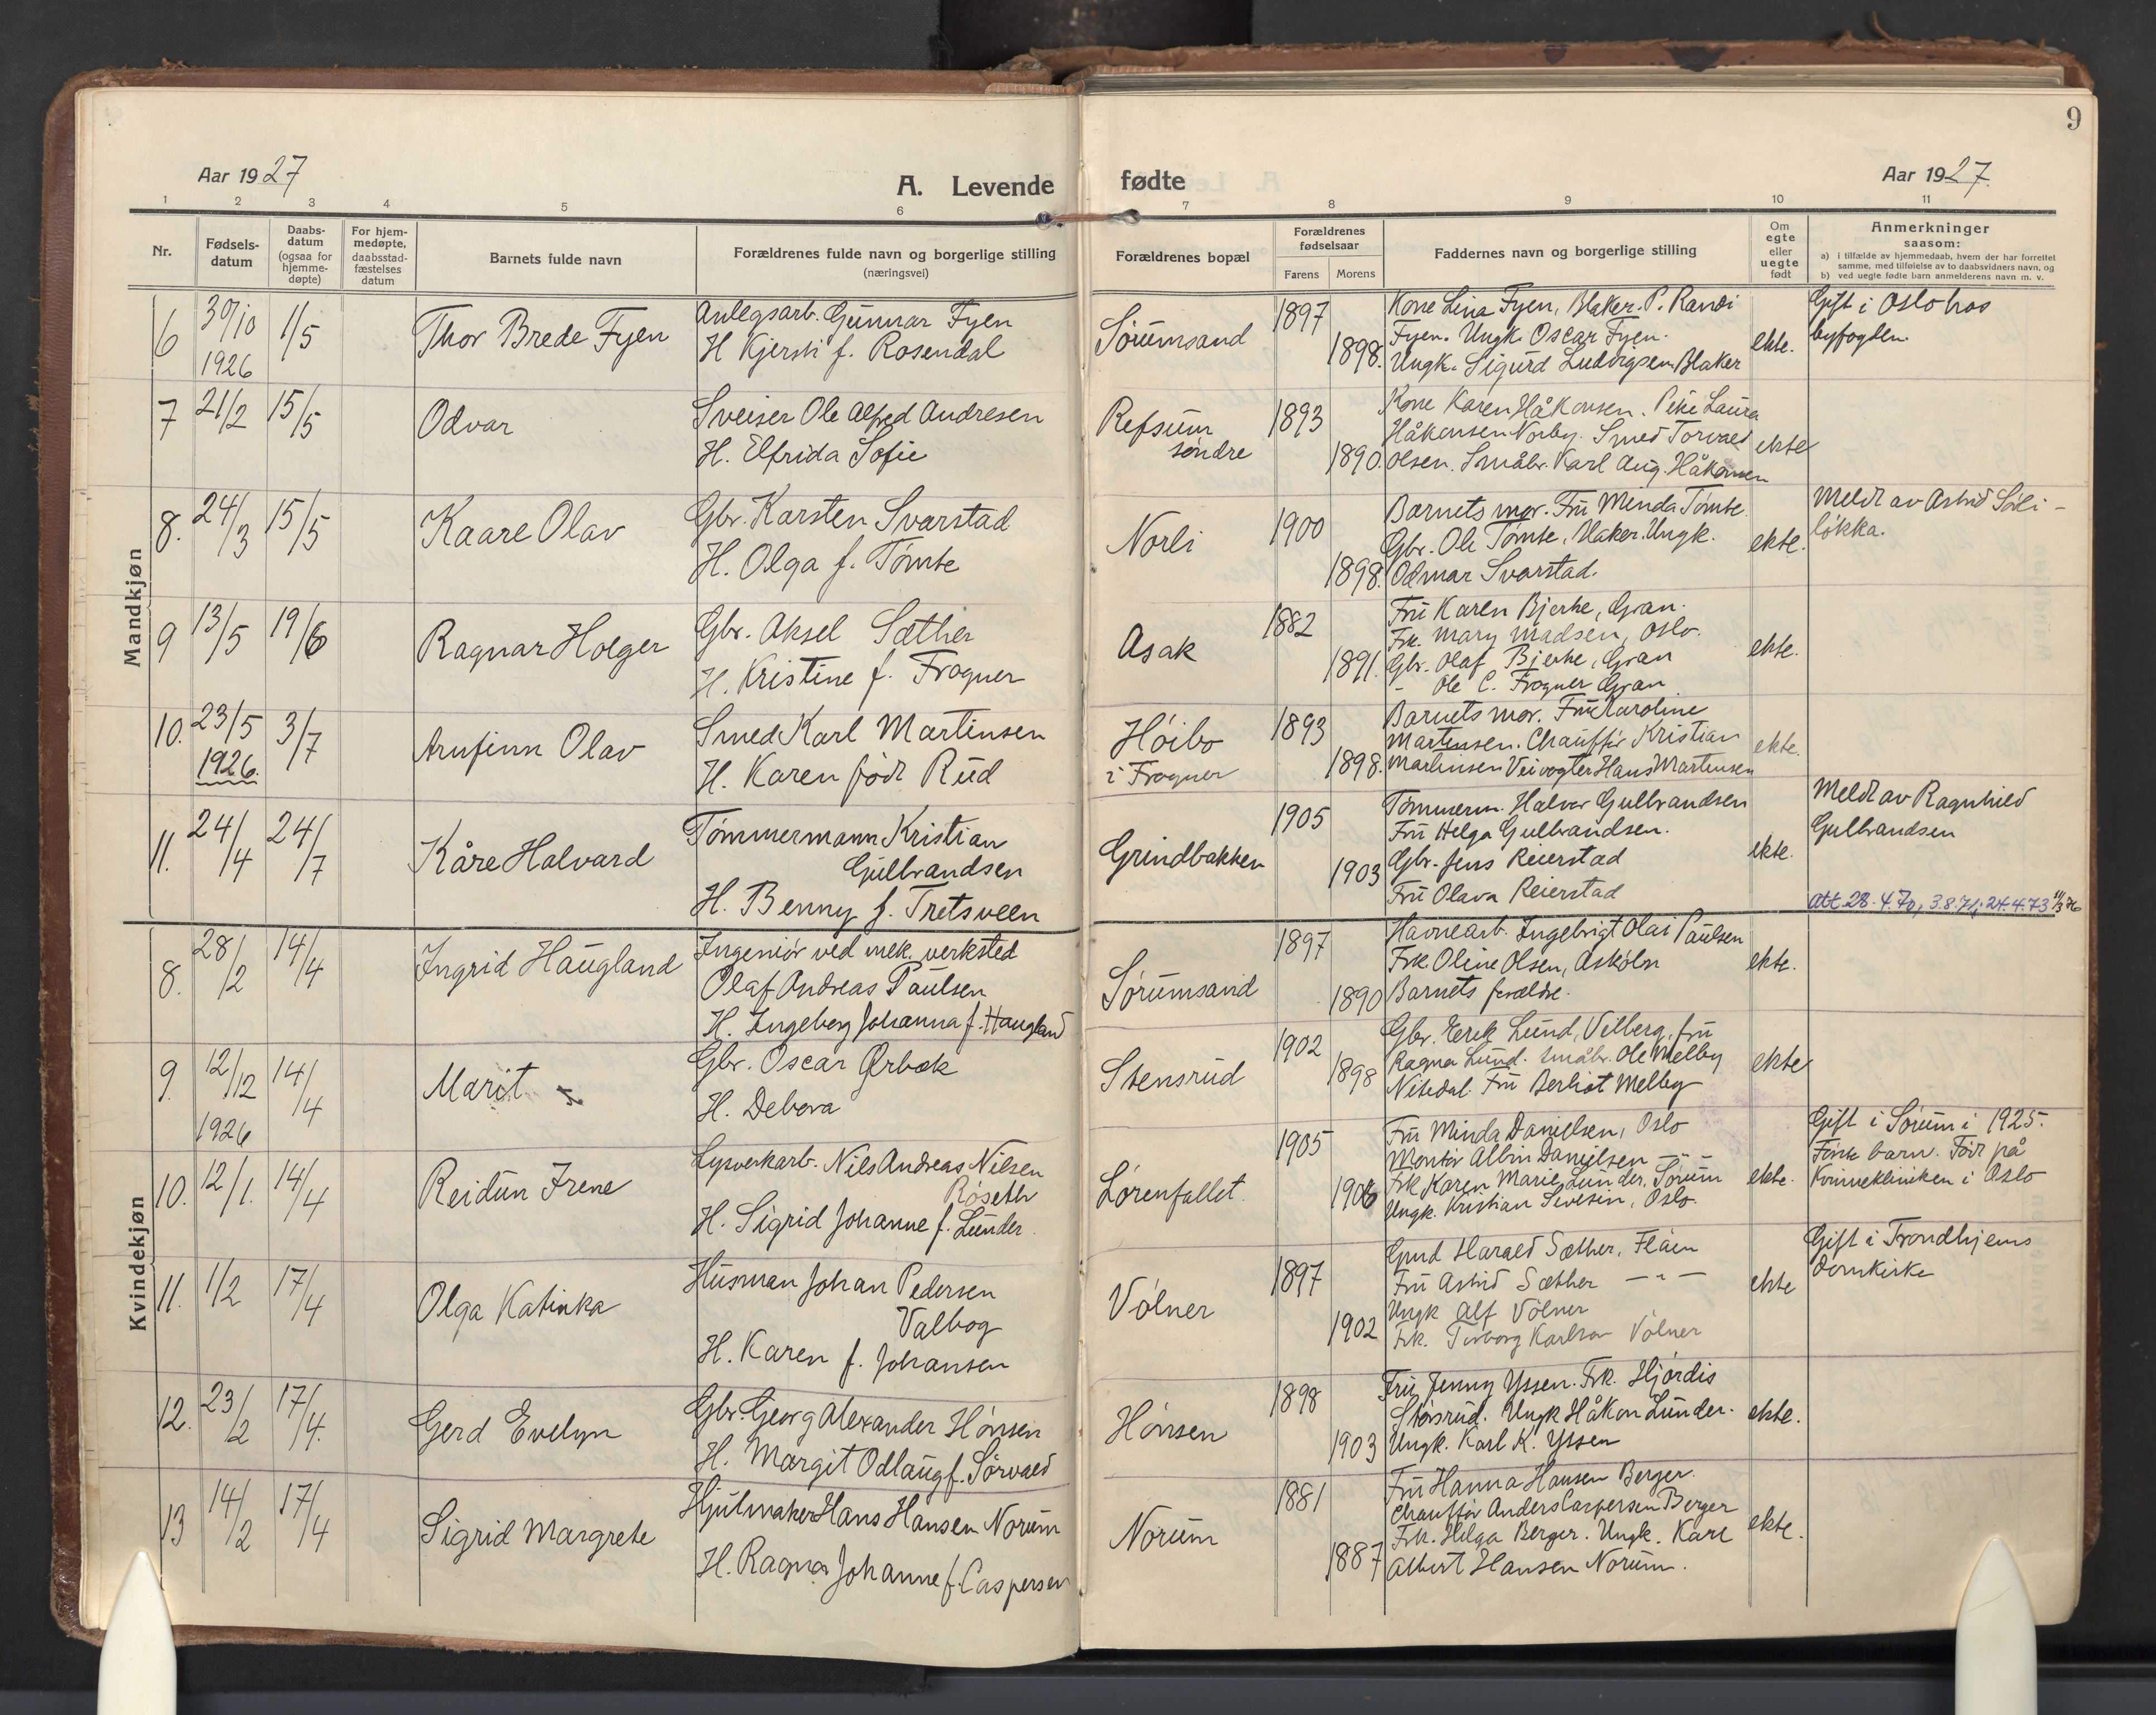 9
Aar 1927
A. Levende
fødte
Aar 1927.
1 2 3 4 5 6 7 8 9 10 11
Nr.
Fødsels-
datum
Daabs-
datum
(ogsaa for
hjemme-
døpte)
For hjem-
medøpte,
daabsstad-
fæstelses
datum
Barnets fulde navn
Forældrenes fulde navn og borgerlige stilling
(næringsvei)
Forældrenes bopæl
Forældrenes
fødselsaar
Farens Morens
Faddernes navn og borgerlige stilling
Om
egte
eller
uegte
født
Anmerkninger
saasom:
a) i tilfælde av hjemmedaab, hvem der har forrettet
samme, med tilføielse av to daabsvidners navn, og
b) ved uegte fødte barn anmelderens navn m. v.
Mandkjøn
6 30/10 1926 1/5
Thor Brede Fyen
Anlegsarb. Gunnar Fyen
H Kjersti f. Rosendal
Sørumsand
1897
1898.
Kone Lina Fyen, Blaker. P. Randi
Fyen. Ungk. Oscar Fyen.
Ungk. Sigurd Ludvigsen Blaker
ekte.
Gift i Oslo hos
byfogden.
7 21/2 15/5
Odvar
Sveiser Ole Alfred Andresen
H. Elfrida Sofie
Refsum
søndre
1893
1890.
Kone Karen Håkonsen. Pike Laura
Håkonsen Norby. Smed Torvald
Olsen. Småbr. Karl Aug. Håkonsen
ekte
8. 24/3 15/5
Kaare Olav
Gbr. Karsten Svarstad
H. Olga f. Tømte
Norli
1900
1898.
Barnets mor. Fru Minda Tømte.
Gbr. Ole Tømte, Ungk.
Odmar Svarstad.
ekte.
Meldt av Astrid Soli-
løkka.
9 13/5 19/6
Ragnar Holger
Gbr. Aksel Sæther
H. Kristine f. Frogner
Asak
1882
1891.
Fru Karen Bjerke, Gran.
Frk. Mary Madsen, Oslo.
Gbr. Olaf Bjerke, Gran
- Ole C. Frogner Gran
ekte.
10. 23/5 1926. 3/7
Arnfinn Olav
Smed Karl Martinsen
H. Karen født Rud
Høibo
i Frogner
1893
1898.
Barnets mor. Fru Karoline
Martinsen. Chauffør Kristian
Martinsen Veivogter Hans Martinsen
ekte.
11. 24/4 24/7
Kåre Halvard
Tømmermann Kristian
Gulbrandsen
H. Benny f. Tretsveen
Grindbakken
1905
1903
Tømmerm. Halvor Gulbrandsen
Fru Helga Gulbrandsen.
Gbr. Jens Reierstad
Fru Olava Reierstad
ekte.
Meldt av Ragnhild
Gulbrandsen
Att. 28.4.70, 3.8.71, 24.4.73 11/3 76
Kvindekjøn
8. 28/2 14/4
Ingrid Haugland
Ingeniør ved mek. verksted
Olaf Andreas Paulsen
H. Ingeborg Johanna f. Haugland
Sørumsand
1897
1890
Havnearb. Ingebrigt Olai Paulsen
Frk. Oline Olsen,
Barnets forældre.
ekte.
9. 12/12 1926 14/4
Marit
Gbr. Oscar Ørbæk
H. Debora
Stensrud
1902
1898
Gbr. Erik Lund, Vilberg, fru
Ragna Lund. Småbr. Ole Melby
Nitedal. Fru Berliot Melby
ekte
10. 12/1. 14/4
Reidun Irene
Lysverkarb. Nils Andreas Nilsen
Røseth
H. Sigrid Johanne f. Lunder.
Lørenfallet
1905
1906
Fru Minda Danielsen, Oslo
Montør Albin Danielsen — " —
Frk Karen Marie Lunder, Sørum
Ungk. Kristian Sivesin, Oslo.
ekte.
Gift i Sørum i 1925.
Første barn. Født på
Kvinneklinikken i Oslo
11. 1/2 17/4
Olga Katinka
Husman Johan Pedersen
Valbog
H. Karen f. Johansen
Vølner
1897
1902
Gmd Harald Sæther, Flåen
Fru Astrid Sæther — " —
Ungk Alf Vølner
Frk. Torborg Karlson Vølner
ekte
Gift i Trondhjems
Domkirke
12. 23/2 17/4.
Gerd Evelyn
Gbr. Georg Alexander Hønsen
H. Margit Odlaug f. Sørvald
Hønsen
1898
1903
Fru Jenny Yssen. Frk. Hjørdis
Stensrud. Ungk Håkon Lunder.
Ungk. Karl K. Yssen
ekte.
13 14/2 17/4
Sigrid Margrete
Hjulmaker Hans Hansen Norum
H. Ragna Johanne f. Caspersen
Norum
1881
1887
Fru Hanna Hansen Berger.
Chauffør Anders Caspersen Berger
Frk. Helga Berger. Ungk. Karl
Albert Hansen Norum.
ekte.